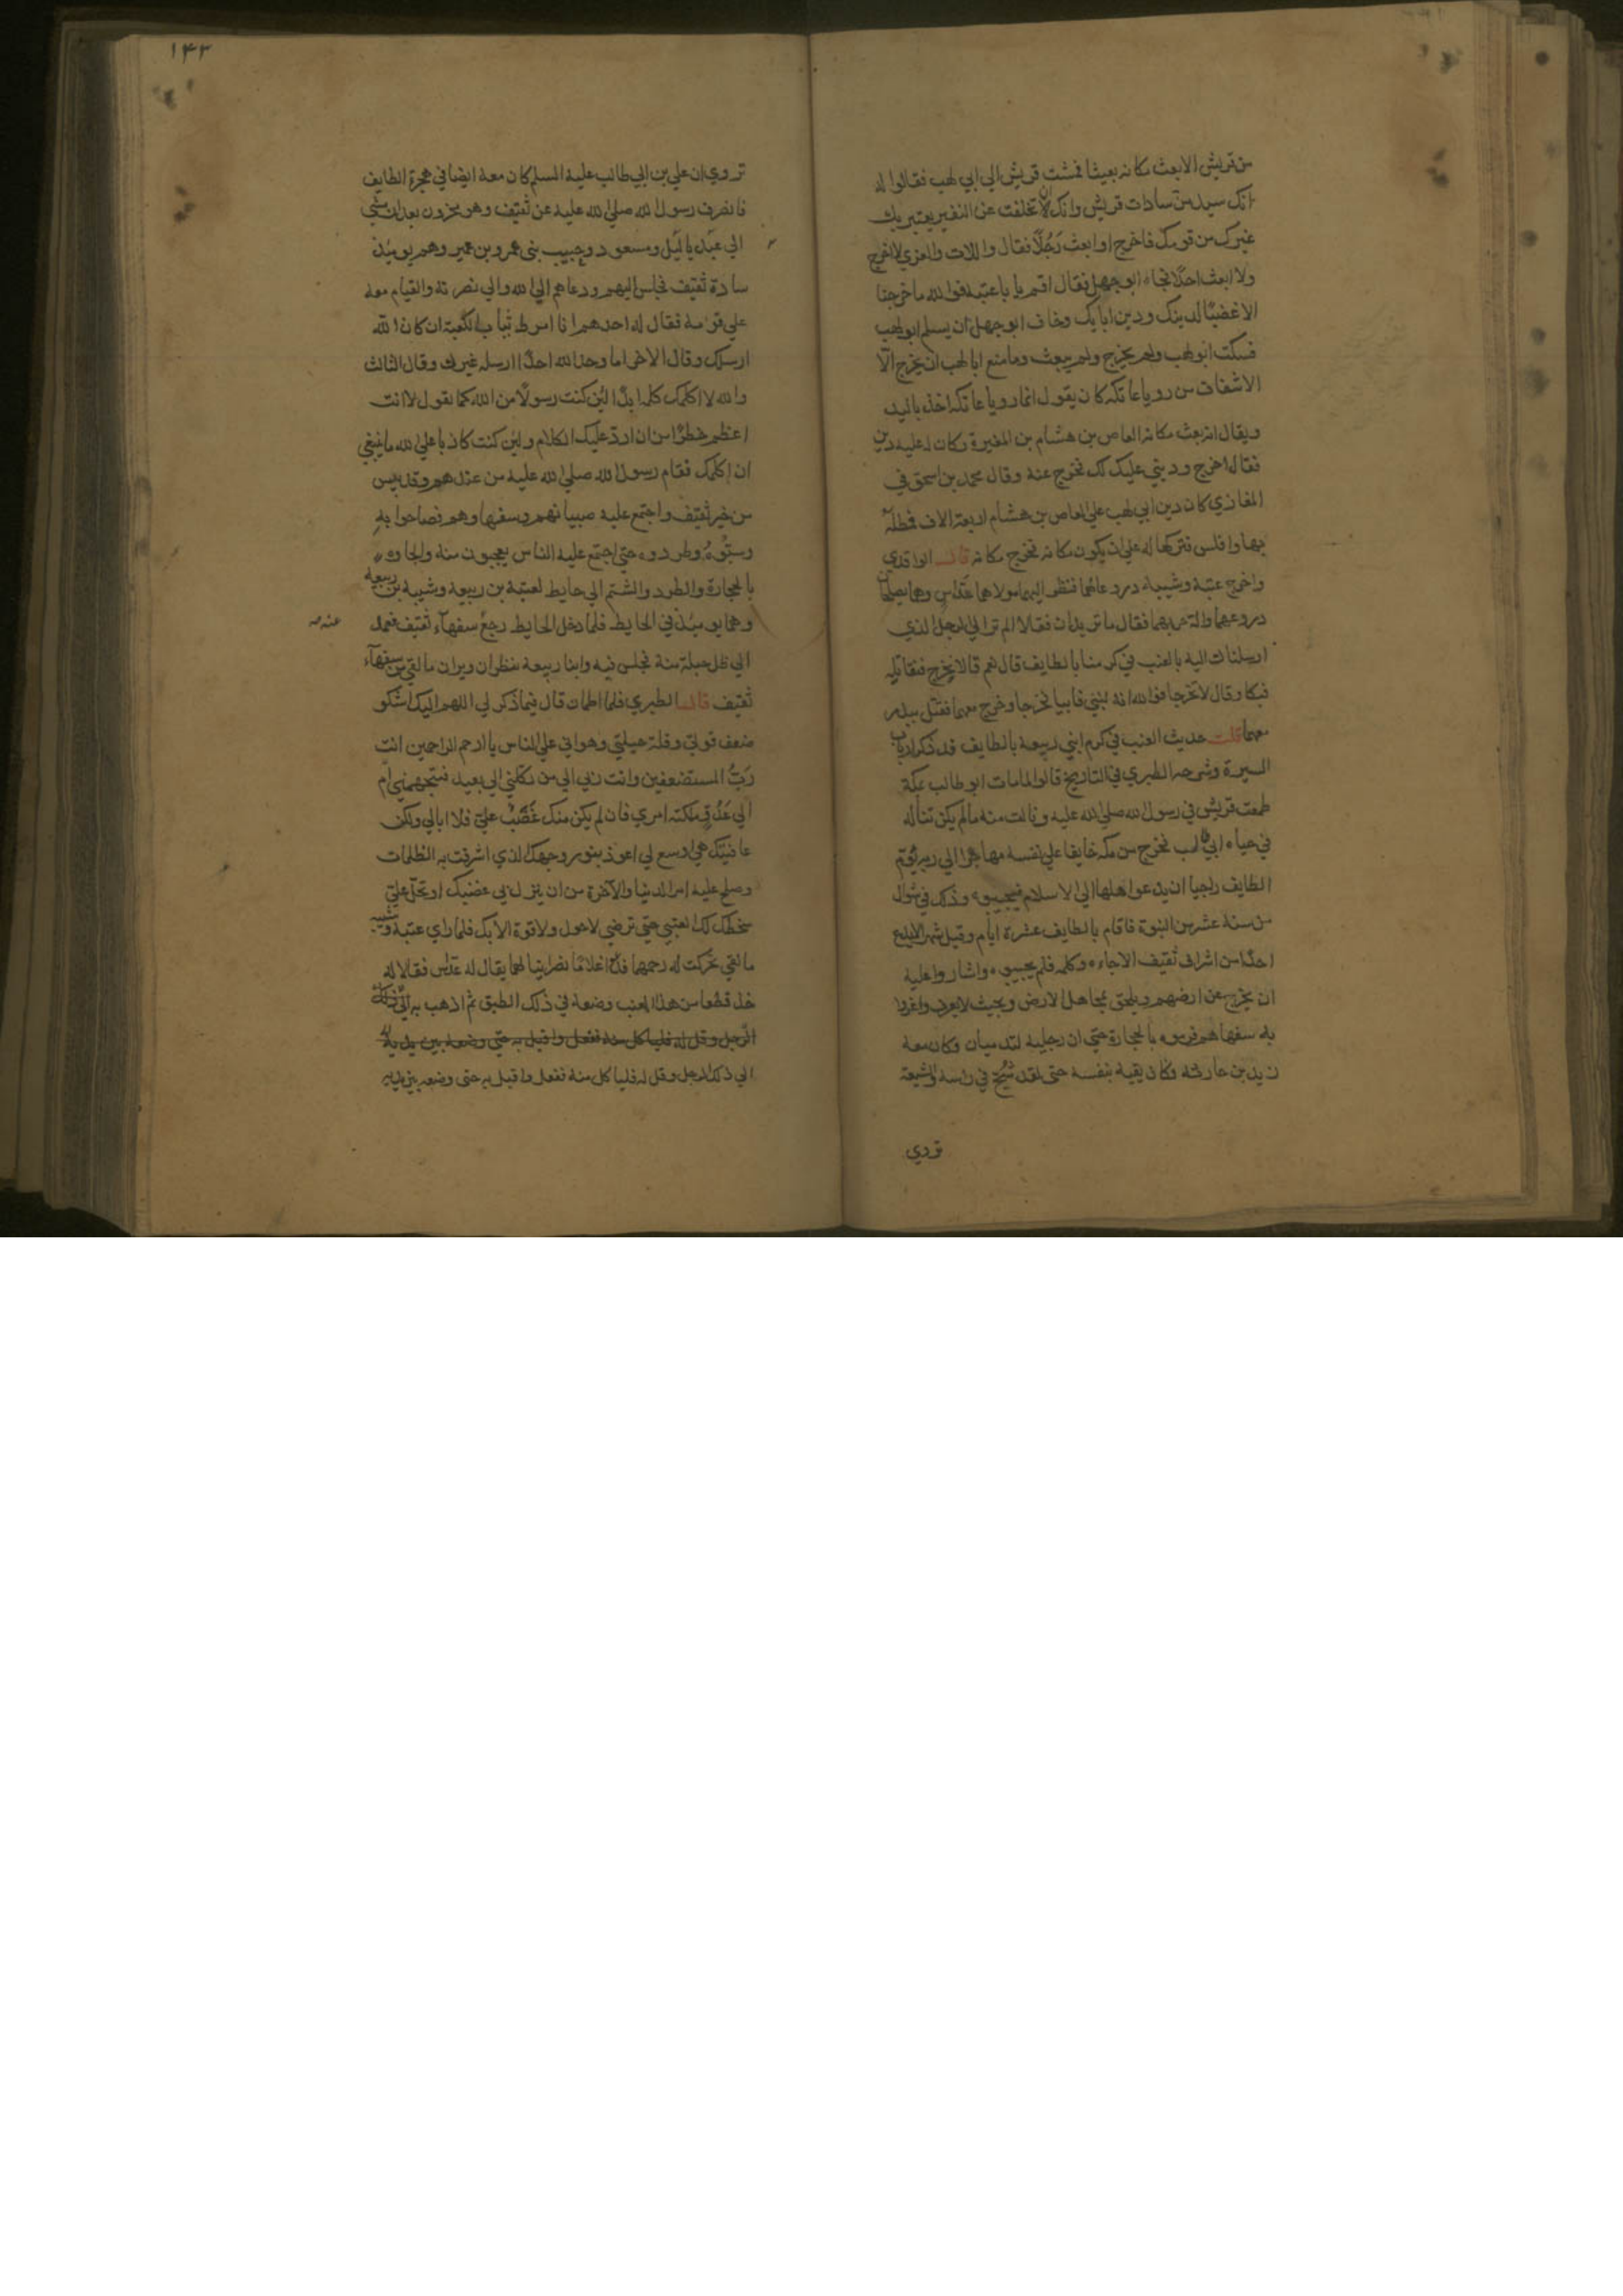 من قريش الا بعث مكانه بعيثا فمشت قريش الي ابي لهب فقالوا له
انك سيد من سادات قريش وانك ان تخلفت عن النفير يعتبر بك
غيرك من قومك فاخرج او ابعث رَجُلًا فقال واللات والعزي لا اخرج
ولا ابعث احدًا فجاءه ابو جهل فقال اقم يا با عتبة فوالله ما خرجنا
الا غضبًا لدينك ودين ابايك وخاف ابو جهل ان يسلم ابو لهب
فسكت ابو لهب ولم يخرج ولم يبعث وما منع ابا لهب ان يخرج الّا
الاشفاق من رويا عاتكه كان يقول انما رويا عاتكه اخذ باليد
ويقال انه بعث مكانه العاص بن هشام بن المغيرة وكان له عليه دين
فقال اخرج وديني عليك لك فخرج عنه وقال محمد بن اسحق في
المغازي كان دين ابي لهب علي العاص بن هشام اربعة الاف فمطله
بها وافلس فتركها له علي ان يكون مكانه فخرج مكانه قال الواقدي
واخرج عتبة وشيبة دروعا لهما فنظر اليهما مولاهما عداس وهما يصلحان
دروعهما والة حربهما فقال ما تريدان فقالا الم تر الي الرجل الذي
ارسلناك اليه بالعنب في كرمنا بالطايف قال نعم قالا نخرج فنقاتله
فبكا وقال لا تخرجا فوالله انه لنبي فابيا فخرجا وخرج معهما فقتل ببدر
معهما قلت حديث العنب في كرم ابني ربيعة بالطايف قد ذكر ارباب
السيرة وشرحه الطبري في التاريخ قالوا لما مات ابو طالب بمكة
طمعت قريش في رسول الله صلي الله عليه ونالت منه ما لم يكن تناله
في حياه ابي طالب فخرج من مكه خايفا علي نفسه مهاجرا الي ربه يؤم
الطايف راجيا ان يدعو اهلها الي الاسلام فيجيبوه وذلك في شوال
من سنة عشر من النبوة فاقام بالطايف عشرة ايام وقيل شهرا لا يدع
احدًا من اشراف ثقيف الا جاءه وكلمه فلم يجيبوه واشاروا عليه
ان يخرج عن ارضهم ويلحق بمجاهل الارض وبحيث لا يعرف واغروا
به سفهاهم فرموه بالحجارة حتي ان رجليه لتدميان وكان معه
زيد بن حارثه وكان يقيه بنفسه حتى لقد شج في راسه والشيعة
تروي
١٤٣
تروي ان علي بن ابي طالب عليه السلم كان معه ايضا في هجرة الطايف
فانصرف رسول الله صلي الله عليه عن ثقيف وهو محزون بعد ان مشي
الي عبد ياليل ومسعود وحبيب بنى عمرو بن عمير وهم يوميذ
سادة ثقيف فجلس اليهم ودعاهم الي الله والي نصرته والقيام معه
علي قومه فقال له احدهم انا امرط ثياب الكعبة ان كان الله
ارسلك وقال الاخر اما وجد الله احدًا ارسله غيرك وقال الثالث
والله لا اكلمك كلمه ابدًا لئن كنت رسولًا من الله كما تقول لانت
اعظم خطرًا من ان ارد عليك الكلام ولئن كنت كاذبا علي الله ما ينبغي
ان اكلمك فقام رسول الله صلي الله عليه من عندهم وقد يس
من خير ثقيف واجتمع عليه صبيانهم وسفهاوهم فصاحوا به
وسبّوهُ وطردوه حتي اجتمع عليه الناس يعجبون منه والجاوه
بالحجارة والطرد والشتم الي حايط لعتبة بن ربيعة وشيبة بن ربيعه
وهما يوميذ في الحايط فلما دخل الحايط رجع سفهآء ثقيف فعمد
عنه صـ
الي ظل حبلة منه فجلس فيه وابنا ربيعه ينظران ويريان ما لقي من سفهآء
ثقيف قال الطبري فلما اطمان قال فيما ذكر لي اللهم اليك اشكو
ضعف قوتي وقلة حيلتي وهواني علي الناس يا ارحم الراحمين انت
رَبُّ المستضعفين وانت ربي الي من تكلني الي بعيد فيتجهمني ام
الي عَدُوّ ملكته امري فان لم يكن منك غَضَبٌ عليّ فلا ابالي ولكن
عافيتك هي اوسع لي اعوذ بنور وجهك الذي اشرقت به الظلمات
وصلح عليه امر الدنيا والآخرة من ان ينزل بي غضبك او تحلّ عليّ
سخطك لك العتبي حتي ترضي لا حول ولا قوة الا بك فلما راي عتبة وشيبه
ما لقي تحركت له رحمهما فدعوا غلامًا نصرانيا لهما يقال له عداس فقالا له
خذ قطفا من هذا العنب وضعه في ذلك الطبق ثم اذهب به الي ذلك
الرجل وقل له فلياكل منه ففعل واقبل به حتي وضعه بين يديه
الي ذلك الرجل وقل له فلياكل منه ففعل واقبل به حتى وضعه بين يديه